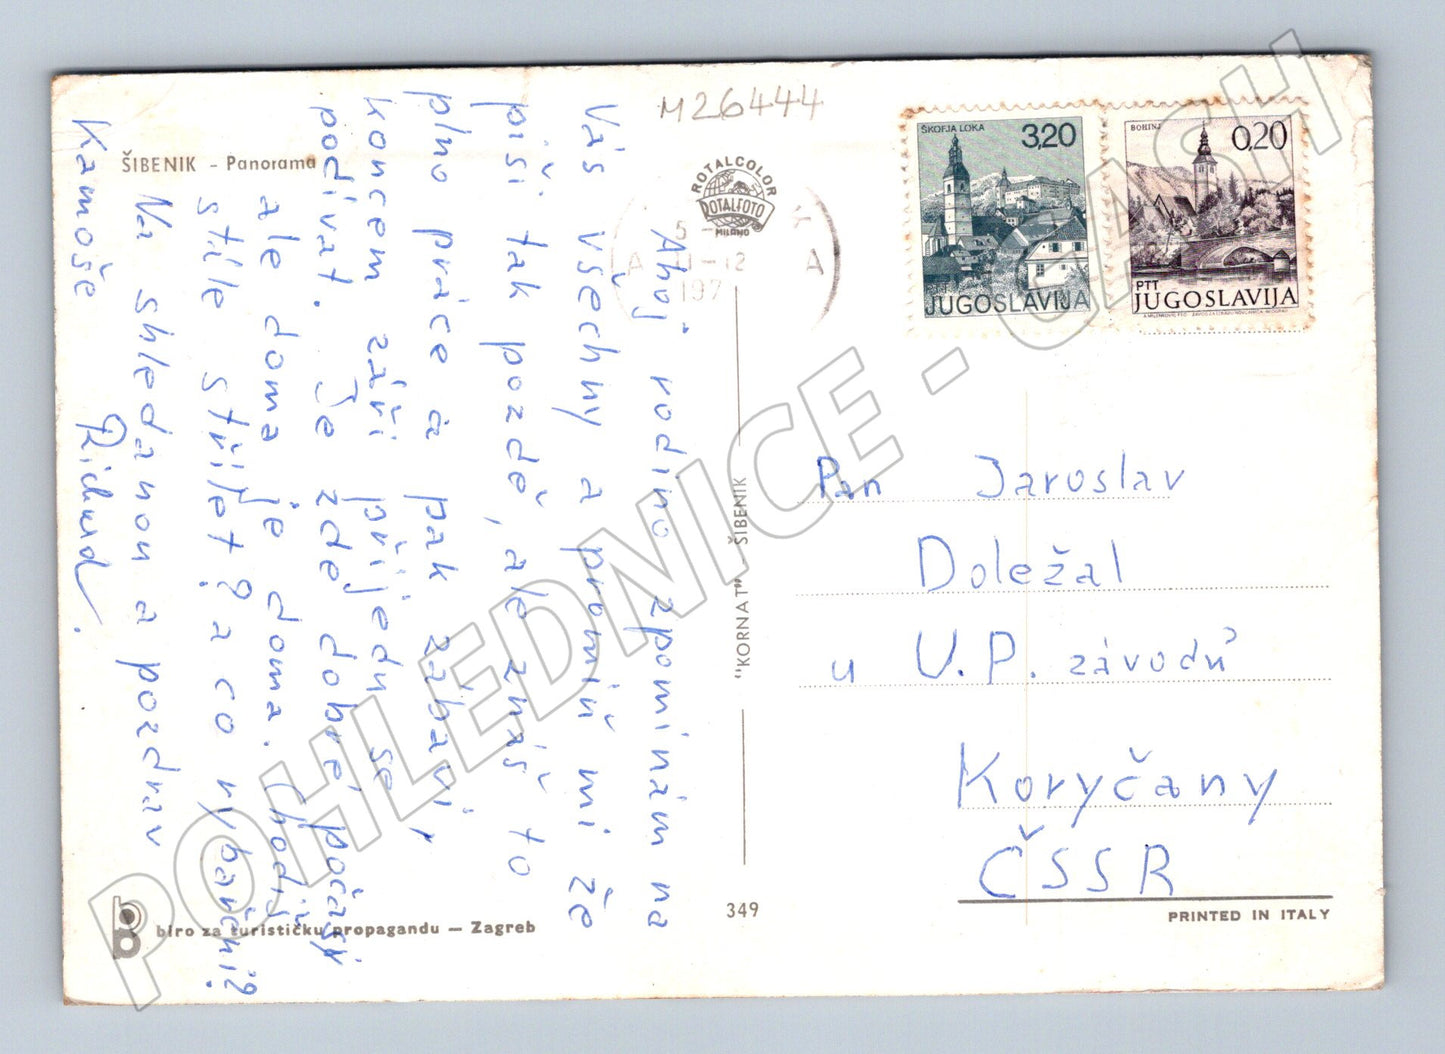 M26444
ŠIBENIK - Panorama
ROTALCOLOR
ROTALFOTO
MILANO
ŠKOFJA LOKA
3,20
PTT
JUGOSLAVIJA
BOHINJ
0,20
PTT
JUGOSLAVIJA
5
11-12
197
A
A
Ahoj rodino zpomínám na
Vás všechny a promiň mi že
píši tak pozdě, ale znáš to
plno práce a pak zábavi,
koncem září přijedu se
podívat. Je zde dobré počasí
ale doma je doma. Chodíš
stále střílet? a co rybaření?
Na shledanou a pozdrav
Kamoše Richard.
"KORNAT" ŠIBENIK
349
Pan Jaroslav
Doležal
u U.P. závodů
Koryčany
ČSSR
PRINTED IN ITALY
biro za turističku propagandu — Zagreb
POHLEDNICE - CASH